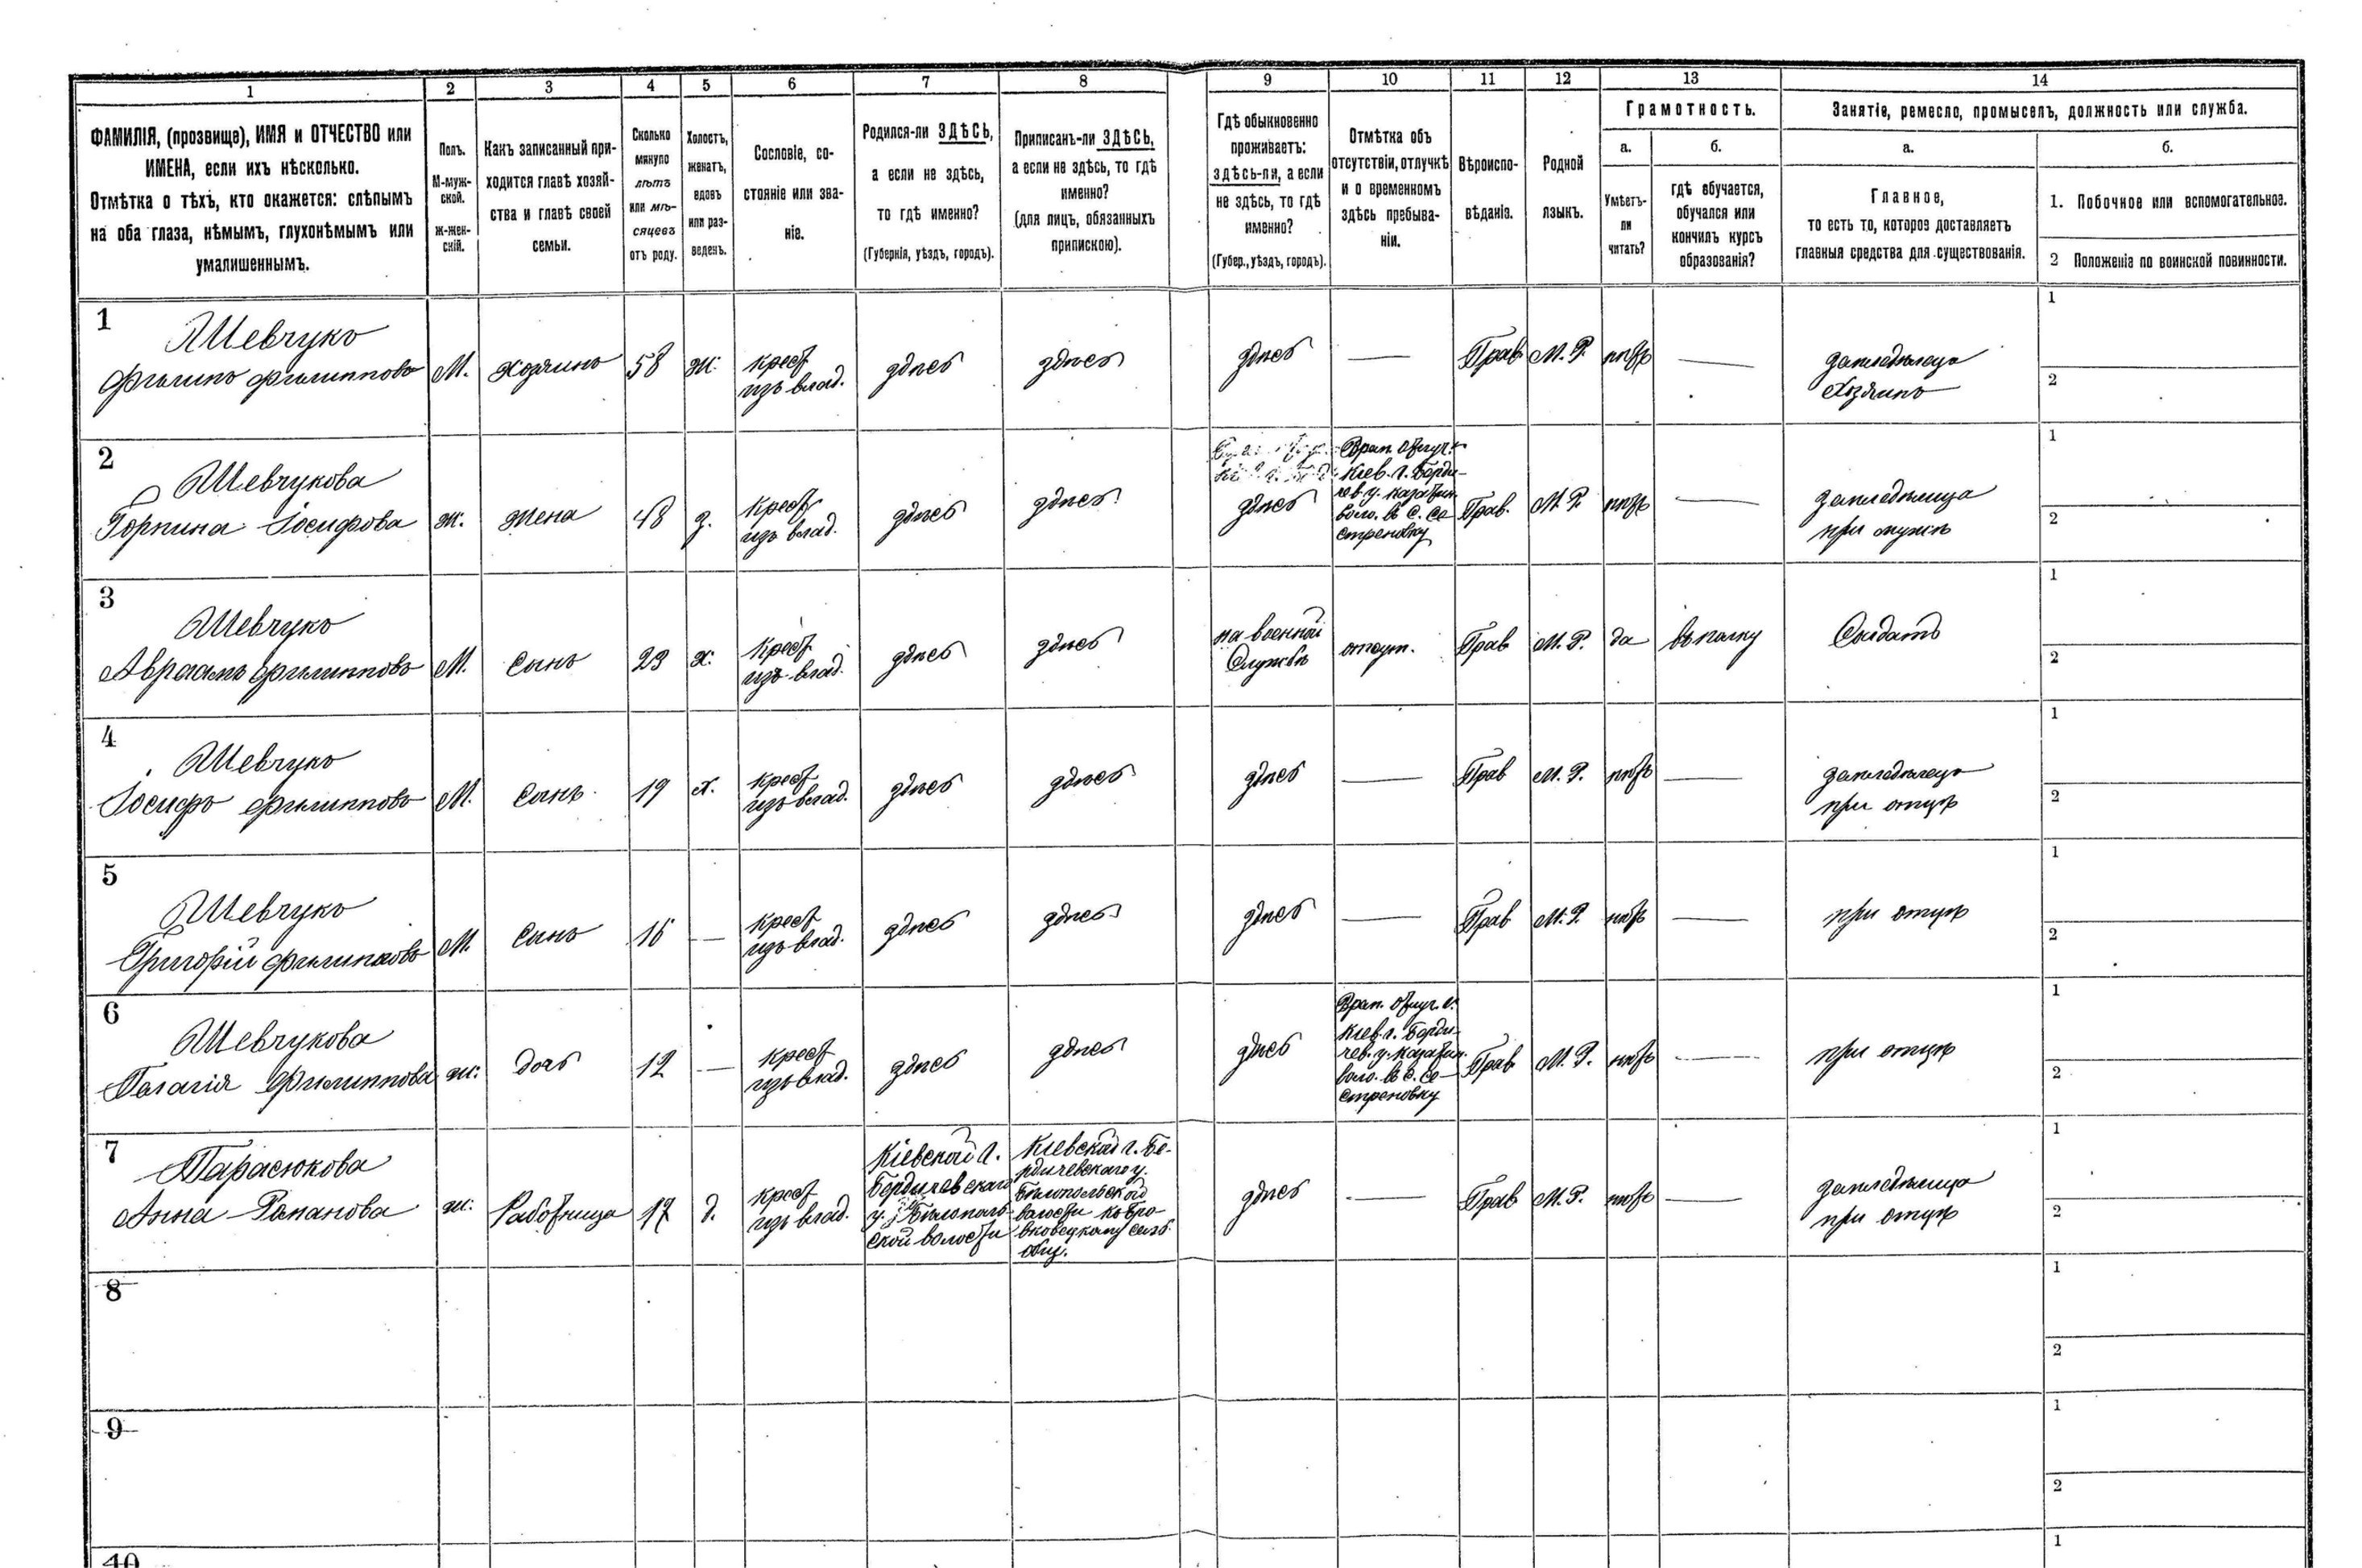 1 2 3 4 5 6 7 8 9 10 11 12 13 14
ФАМИЛІЯ, (прозвище), ИМЯ и ОТЧЕСТВО или
ИМЕНА, если ихъ нѣсколько.
Отмѣтка о тѣхъ, кто окажется: слѣпымъ
на оба глаза, нѣмымъ, глухонѣмымъ или
умалишеннымъ.
Полъ.
М-муж-
ской.
ж-жен-
скій.
Какъ записанный при-
ходится главѣ хозяй-
ства и главѣ своей
семьи.
Сколько
минуло
лѣтъ
или мѣ-
сяцевъ
отъ роду.
Холостъ,
женатъ,
вдовъ
или раз-
веденъ.
Сословіе, со-
стояніе или зва-
ніе.
Родился-ли ЗДѢСЬ,
а если не здѣсь,
то гдѣ именно?
(Губернія, уѣздъ, городъ).
Приписанъ-ли ЗДѢСЬ,
а если не здѣсь, то гдѣ
именно?
(для лицъ, обязанныхъ
припискою).
Гдѣ обыкновенно
проживаетъ:
здѣсь-ли, а если
не здѣсь, то гдѣ
именно?
(Губер., уѣздъ, городъ).
Отмѣтка объ
отсутствіи, отлучкѣ
и о временномъ
здѣсь пребыва-
ніи.
Вѣроиспо-
вѣданіе.
Родной
языкъ.
Грамотность.
а.
Умѣетъ-
ли
читать?
б.
гдѣ обучается,
обучался или
кончилъ курсъ
образованія?
Занятіе, ремесло, промыселъ, должность или служба.
а.
Главное,
то есть то, которое доставляетъ
главныя средства для существованія.
б.
1. Побочное или вспомогательное.
2 Положеніе по воинской повинности.
1
Шевчукъ
Филипъ Филипповъ
М.
Хозяинъ
58
ж.
крест
изъ влад.
здѣсь
здѣсь
здѣсь
—
Прав
М. Р.
нѣтъ
—
земледѣлецъ
Хозяинъ
1
2
2
Шевчукова
Горпина Іосифова
ж.
жена
48
з.
крест
изъ влад.
здѣсь
здѣсь
здѣсь
Врем. отлуч.
Кіев. г. Берди-
чев. у. казатин.
воло. въ с. Се
стреновку
Прав.
М. Р.
нѣтъ
—
земледѣлица
при мужѣ
1
2
3
Шевчукъ
Авраамъ Филипповъ
М.
сынъ
23
х.
крест
изъ влад.
здѣсь
здѣсь
на военной
Службѣ
отсут.
Прав
М. Р.
да
въ полку
Солдатъ
1
2
4
Шевчукъ
Іосифъ Филипповъ
М.
сынъ
19
х.
крест
изъ влад.
здѣсь
здѣсь
здѣсь
—
Прав
М. Р.
нѣтъ
—
земледѣлецъ
при отцѣ
1
2
5
Шевчукъ
Григорій Филипповъ
М.
сынъ
—
крест
изъ влад.
здѣсь
здѣсь
здѣсь
—
Прав
М. Р.
нѣтъ
—
при отцѣ
1
2
6
Шевчукова
Палагія Филиппова
ж.
дочь
12
—
крест
изъ влад.
здѣсь
здѣсь
здѣсь
Врем. отлуч. в.
Кіев. г. Берди-
чев. у. казатин.
воло. въ с. Се-
стреновку
Прав
М. Р.
нѣтъ
—
при отцѣ
1
2
7
Тарасюкова
Анна Романова
ж.
Работница
17
д.
крест
изъ влад.
Кіевской г.
Бердичевскаго
у. Бѣлополь-
ской волости
Кіевской г. Бе-
рдичевскаго у.
Бѣлопольской
волости
общ.
здѣсь
—
Прав
М. Р.
нѣтъ
—
земледѣлица
при отцѣ
1
2
8
1
2
9
1
2
10
1